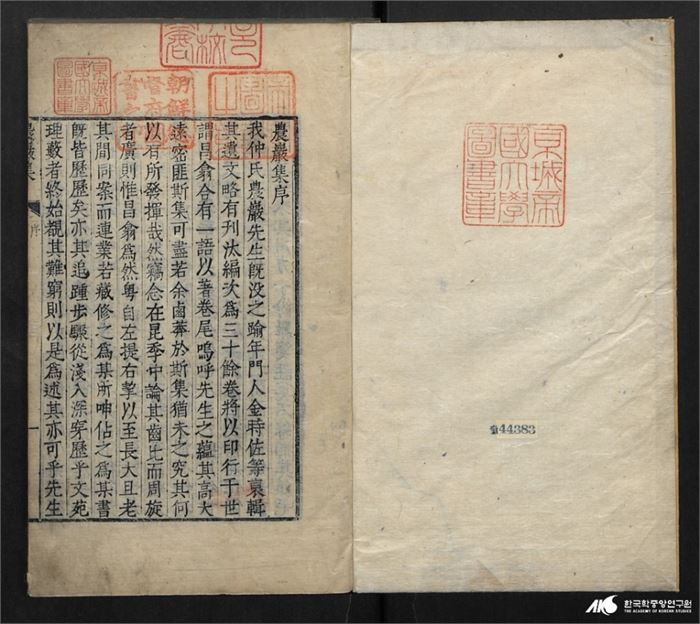 京城帝
國大學
圖書章
44383
農巖集序
我仲氏農巖先生旣没之踰年門人金時佐等裒輯
其遺文略有刊汰編次為三十餘卷將以印行于世
謂昌翕合有一語以著卷尾嗚呼先生之蘊其高大
遠密匪斯集可盡若余鹵莽於斯集猶未之究其何
以有所發揮哉然竊念在昆季中論其齒比而周旋
者廣則惟昌翕為然粤自左提右挈以至長大且老
其間同案而連業若藏修之為某所呻佔之為某書
旣皆歷歷矣亦其追踵步驟從淺入深穿歷乎文苑
理藪者終始覩其難窮則以是為述其亦可乎先生
農巖集 序 一
京城帝
國大學
圖書章
AKS 한국학중앙연구원
THE ACADEMY OF KOREAN STUDIES